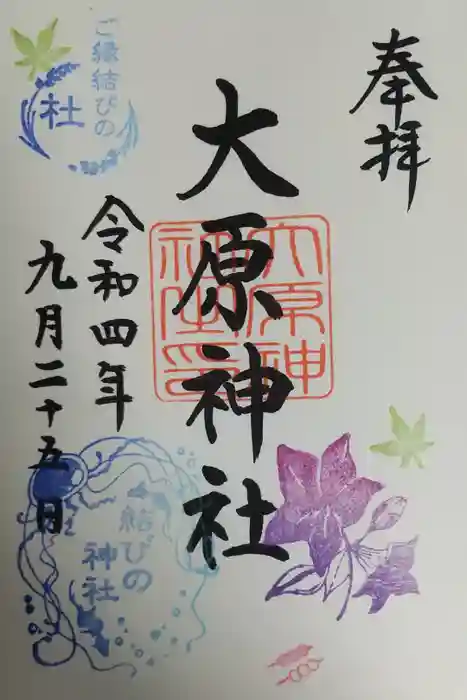 奉拝
大原神社
令和四年
九月二十五日
ご縁結びの
社
結びの
神社
大原神
社印